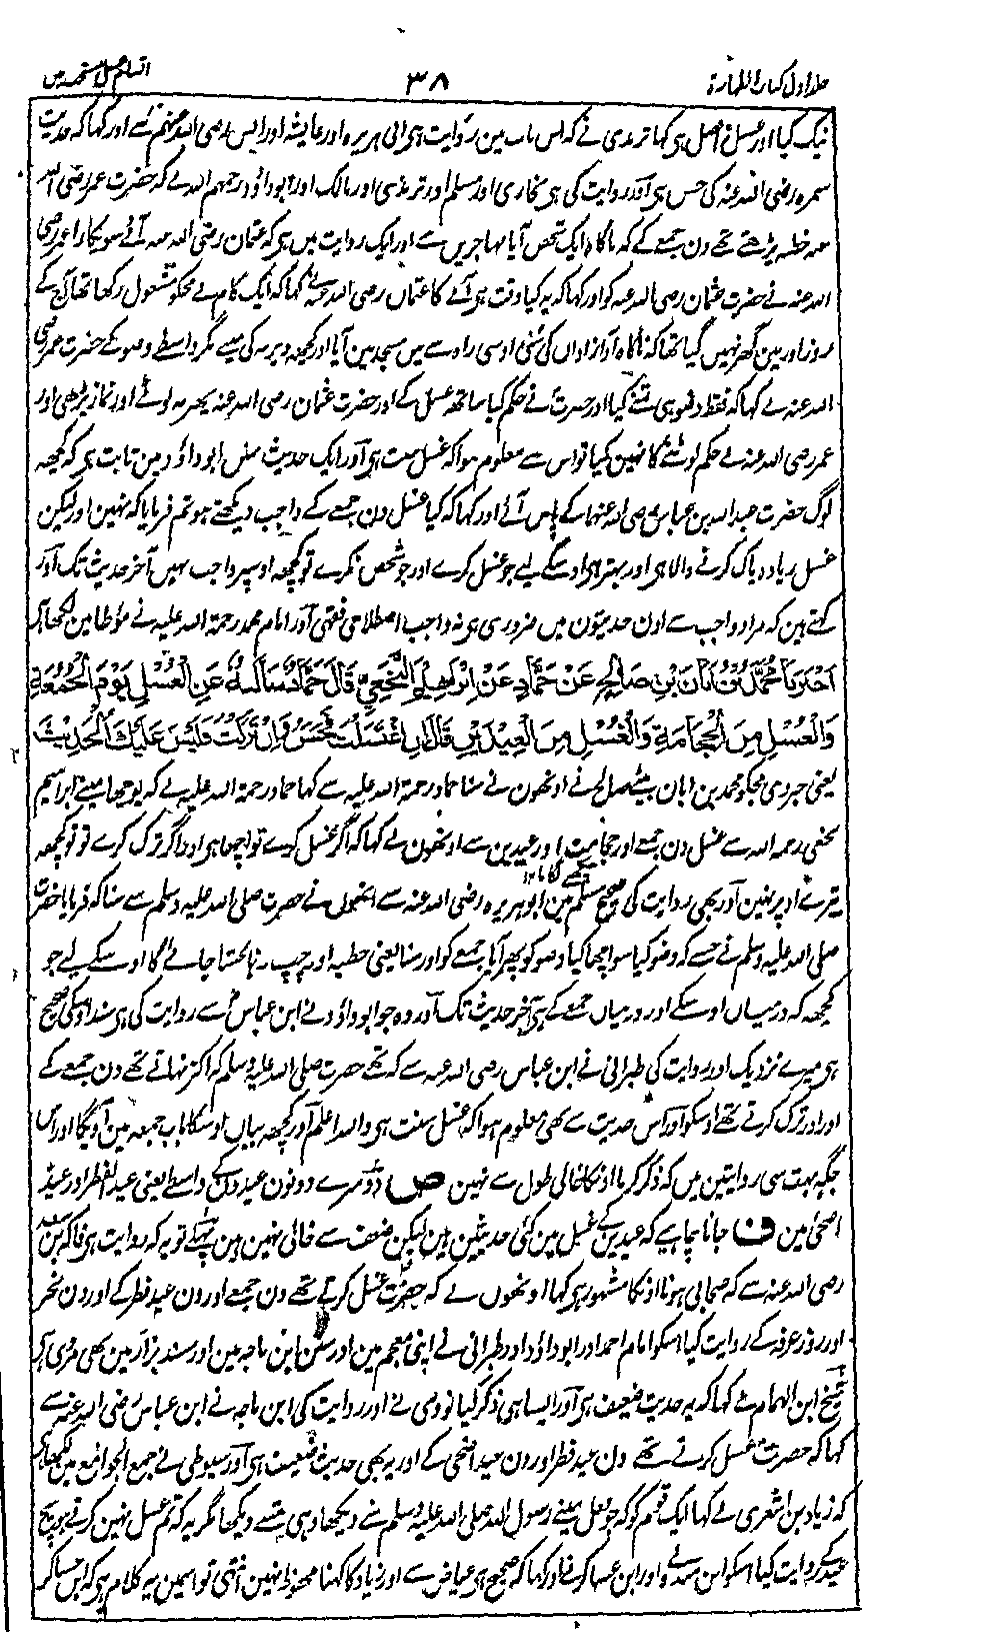 جلد اول کتاب الطہارة
۳۸
اقسام غسل مستحبہ میں
نیک کیا اور غسل افضل ہی کہا ترمذی نے کہ اس باب مین روایت ہی ابی ہریرہ اور عایشہ اور انس رضی اللہ عنہم سے اور کہا کہ حدیث
سمرہ رضی اللہ عنہ کی حسن ہی اور روایت کی ہی بخاری اور مسلم اور ترمذی اور مالک اور ابو داؤد رحمہم اللہ نے کہ حضرت عمر رضی اللہ
عنہ خطبہ پڑھتے تھے دن جمعے کے کہ ناگاہ ایک شخص آیا مہاجرین سے اور ایک روایت میں ہی کہ عثمان رضی اللہ عنہ آئے سو پکارا عمر رضی
اللہ عنہ نے حضرت عثمان رضی اللہ عنہ کو اور کہا کہ یہ کیا وقت ہی آنے کا عثمان رضی اللہ عنہ نے کہا کہ ایک کام نے مجکو مشغول رکھا تھا آج کے
روز اور مین گھر نہیں گیا تھا کہ ناگاہ آواز اذان کی سُنی اوسی راہ سے میں مسجد مین آیا اور کچھ دیر نہ کی مینے مگر واسطے وضو کے حضرت عمر رضی
اللہ عنہ نے کہا کہ فقط وضو ہی تمنے کیا اور حضرت نے حکم کیا ساتھ غسل کے اور حضرت عثمان رضی اللہ عنہ پھر نہ لوٹے اور نماز پڑھی اور
عمر رضی اللہ عنہ نے حکم لوٹنے کا نہین کیا تو اس سے معلوم ہوا کہ غسل سنت ہی اور ایک حدیث سنن ابو داؤد مین ثابت ہی کہ کچھ
لوگ حضرت عبد اللہ بن عباس رضی اللہ عنہما کے پاس آئے اور کہا کہ کیا غسل دن جمعے کے واجب دیکھتے ہو تم فرمایا کہ نہین اور لیکن
غسل زیادہ پاک کرنے والا ہی اور بہتر ہی اوسکے لیے جو غسل کرے اور جو شخص نکرے تو کچھ اوسپر واجب نہیں آخر حدیث تک اور
کہتے ہین کہ مراد واجب سے اون حدیثون میں ضروری ہی نہ واجب اصطلاحی فقہی اور امام محمد رحمۃ اللہ علیہ نے مؤطا مین لکھا ہی
اَخْبَرَنَا مُحَمَّدُ بْنُ اَبَانَ بْنِ صَالِحٍ عَنْ حَمَّادٍ عَنْ اِبْرٰهِیْمَ النَّخَعِیِّ قَالَ حَمَّادٌ سَاَلْتُهُ عَنِ الْغُسْلِ یَوْمَ الْجُمُعَةِ
وَالْغُسْلِ مِنَ الْحِجَامَةِ وَالْغُسْلِ مِنَ الْعِیْدَیْنِ قَالَ اِنِ اغْتَسَلْتَ فَحَسَنٌ وَاِنْ تَرَکْتَ فَلَیْسَ عَلَیْكَ الْحَدِیْثَ
یعنی خبر دی مجکو محمد بن ابان بیٹے صالح نے اونھون نے سنا حماد رحمۃ اللہ علیہ سے کہا حماد رحمۃ اللہ علیہ نے کہ پوچھا مینے ابراہیم
نخعی رحمہ اللہ سے غسل دن جمعے اور حجامت اور عیدین سے اونھون نے کہا کہ اگر غسل کرے تو اچھا ہی اور اگر ترک کرے تو تو کچھ
تیرے اوپر نہین اور بھی روایت کی صحیح مسلم مین ابو ہریرہ رضی اللہ عنہ سے انھوں نے حضرت صلی اللہ علیہ وسلم سے سنا کہ فرمایا حضرت
صلی اللہ علیہ وسلم نے جسنے کہ وضو کیا سو اچھا کیا وضو کو پھر آیا جمعے کو اور سنا یعنی خطبہ اور چپ رہا بخشا جائے گا اوسکے لیے جو
کچھ کہ درمیاں اوسکے اور درمیاں جمعے کے ہی آخر حدیث تک اور وہ جو ابو داؤد نے ابن عباس سے روایت کی ہی سند اوسکی صحیح
ہی میرے نزدیک اور روایت کی طبرانی نے ابن عباس رضی اللہ عنہ سے کہ تھے حضرت صلی اللہ علیہ وسلم کہ اکثر نہاتے تھے دن جمعے کے
اور اور ترک کرتے تھے اوسکو اور اس حدیث سے بھی معلوم ہوا کہ غسل سنت ہی واللہ اعلم اور کچھ بیاں اوسکا باب جمعہ مین آویگا اور اس
جگہ بہت سی روایتین میں کہ ذکر کرنا اونکا خالی طول سے نہین ص دوسرے دونون عیدوں کے واسطے یعنی عید الفطر اور عید
اضحیٰ مین ف جانا چاہیے کہ عیدین کے غسل مین کئی حدیثین ہین لیکن ضعف سے خالی نہین ہین پہلے تو یہ کہ روایت ہی فاکہ بن سعد
رضی اللہ عنہ سے کہ صحابی ہونا اونکا مشہور ہی کہا اونھوں نے کہ حضرت غسل کرتے تھے دن جمعے اور دن عید فطر کے اور دن نحر
اور روز عرفہ کے روایت کیا اسکو امام احمد اور ابو داؤد اور طبرانی نے اپنی معجم مین اور سنن ابن ماجہ مین اور سند بزار مین بھی مروی ہی
شیخ ابن الہمام نے کہا کہ یہ حدیث ضعیف ہی اور ایسا ہی ذکر کیا نووی نے اور روایت کی ابن ماجہ نے ابن عباس رضی اللہ عنہ سے
کہا کہ حضرت غسل کرتے تھے دن عید فطر اور دن عید اضحی کے اور یہ بھی حدیث ضعیف ہی اور سیوطی نے جمع الجوامع مین لکھا ہی
کہ زیاد بن اشعری نے کہا ایک قوم کو کہ جو فعل مینے رسول اللہ صلی اللہ علیہ وسلم سے دیکھا وہی تمسے دیکھا مگر یہ کہ تم غسل نہین کرتے ہو بیچ
عید کے روایت کیا اسکو ابن مندہ نے اور ابن عساکر نے اور کہا کہ صحیح ہی عیاض سے اور زیاد کا کہنا محفوظ نہین انتہی تو اسمین یہ کلام ہی کہ ابن عساکر